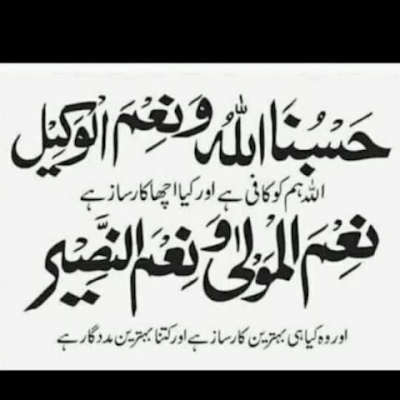 حَسْبُنَا اللّٰهُ وَنِعْمَ الْوَكِيْل
اللہ ہم کو کافی ہے اور کیا اچھا کارساز ہے
نِعْمَ الْمَوْلٰى وَنِعْمَ النَّصِيْر
اور وہ کیا ہی بہترین کارساز ہے اور کتنا بہترین مددگار ہے